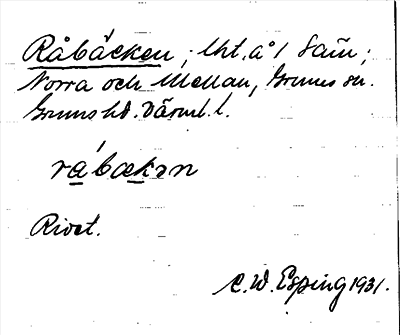 Råbäcken; Uht. å 1 Sam;
Norra och Mellan, Grums sn.
Grums hd. Värml. l.
råbækən
Rivet.
C. W. Esping 1931.